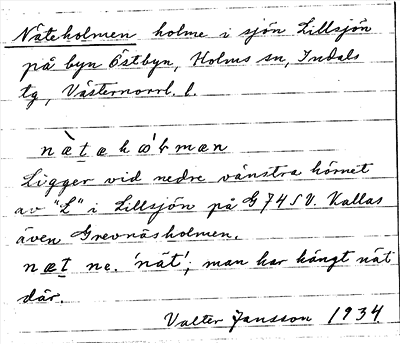 Näteholmen holme i sjön Lillsjön
på byn Östbyn, Holms sn, Indals
tg, Västernorrl. l.
nὲtəhɷ'ɫmən
Ligger vid nedre vänstra hörnet
av "L" i Lillsjön på G74SV. Kallas
även Grevnäsholmen.
næt ne. 'nät', man har hängt nät
där.
Valter Jansson 1934